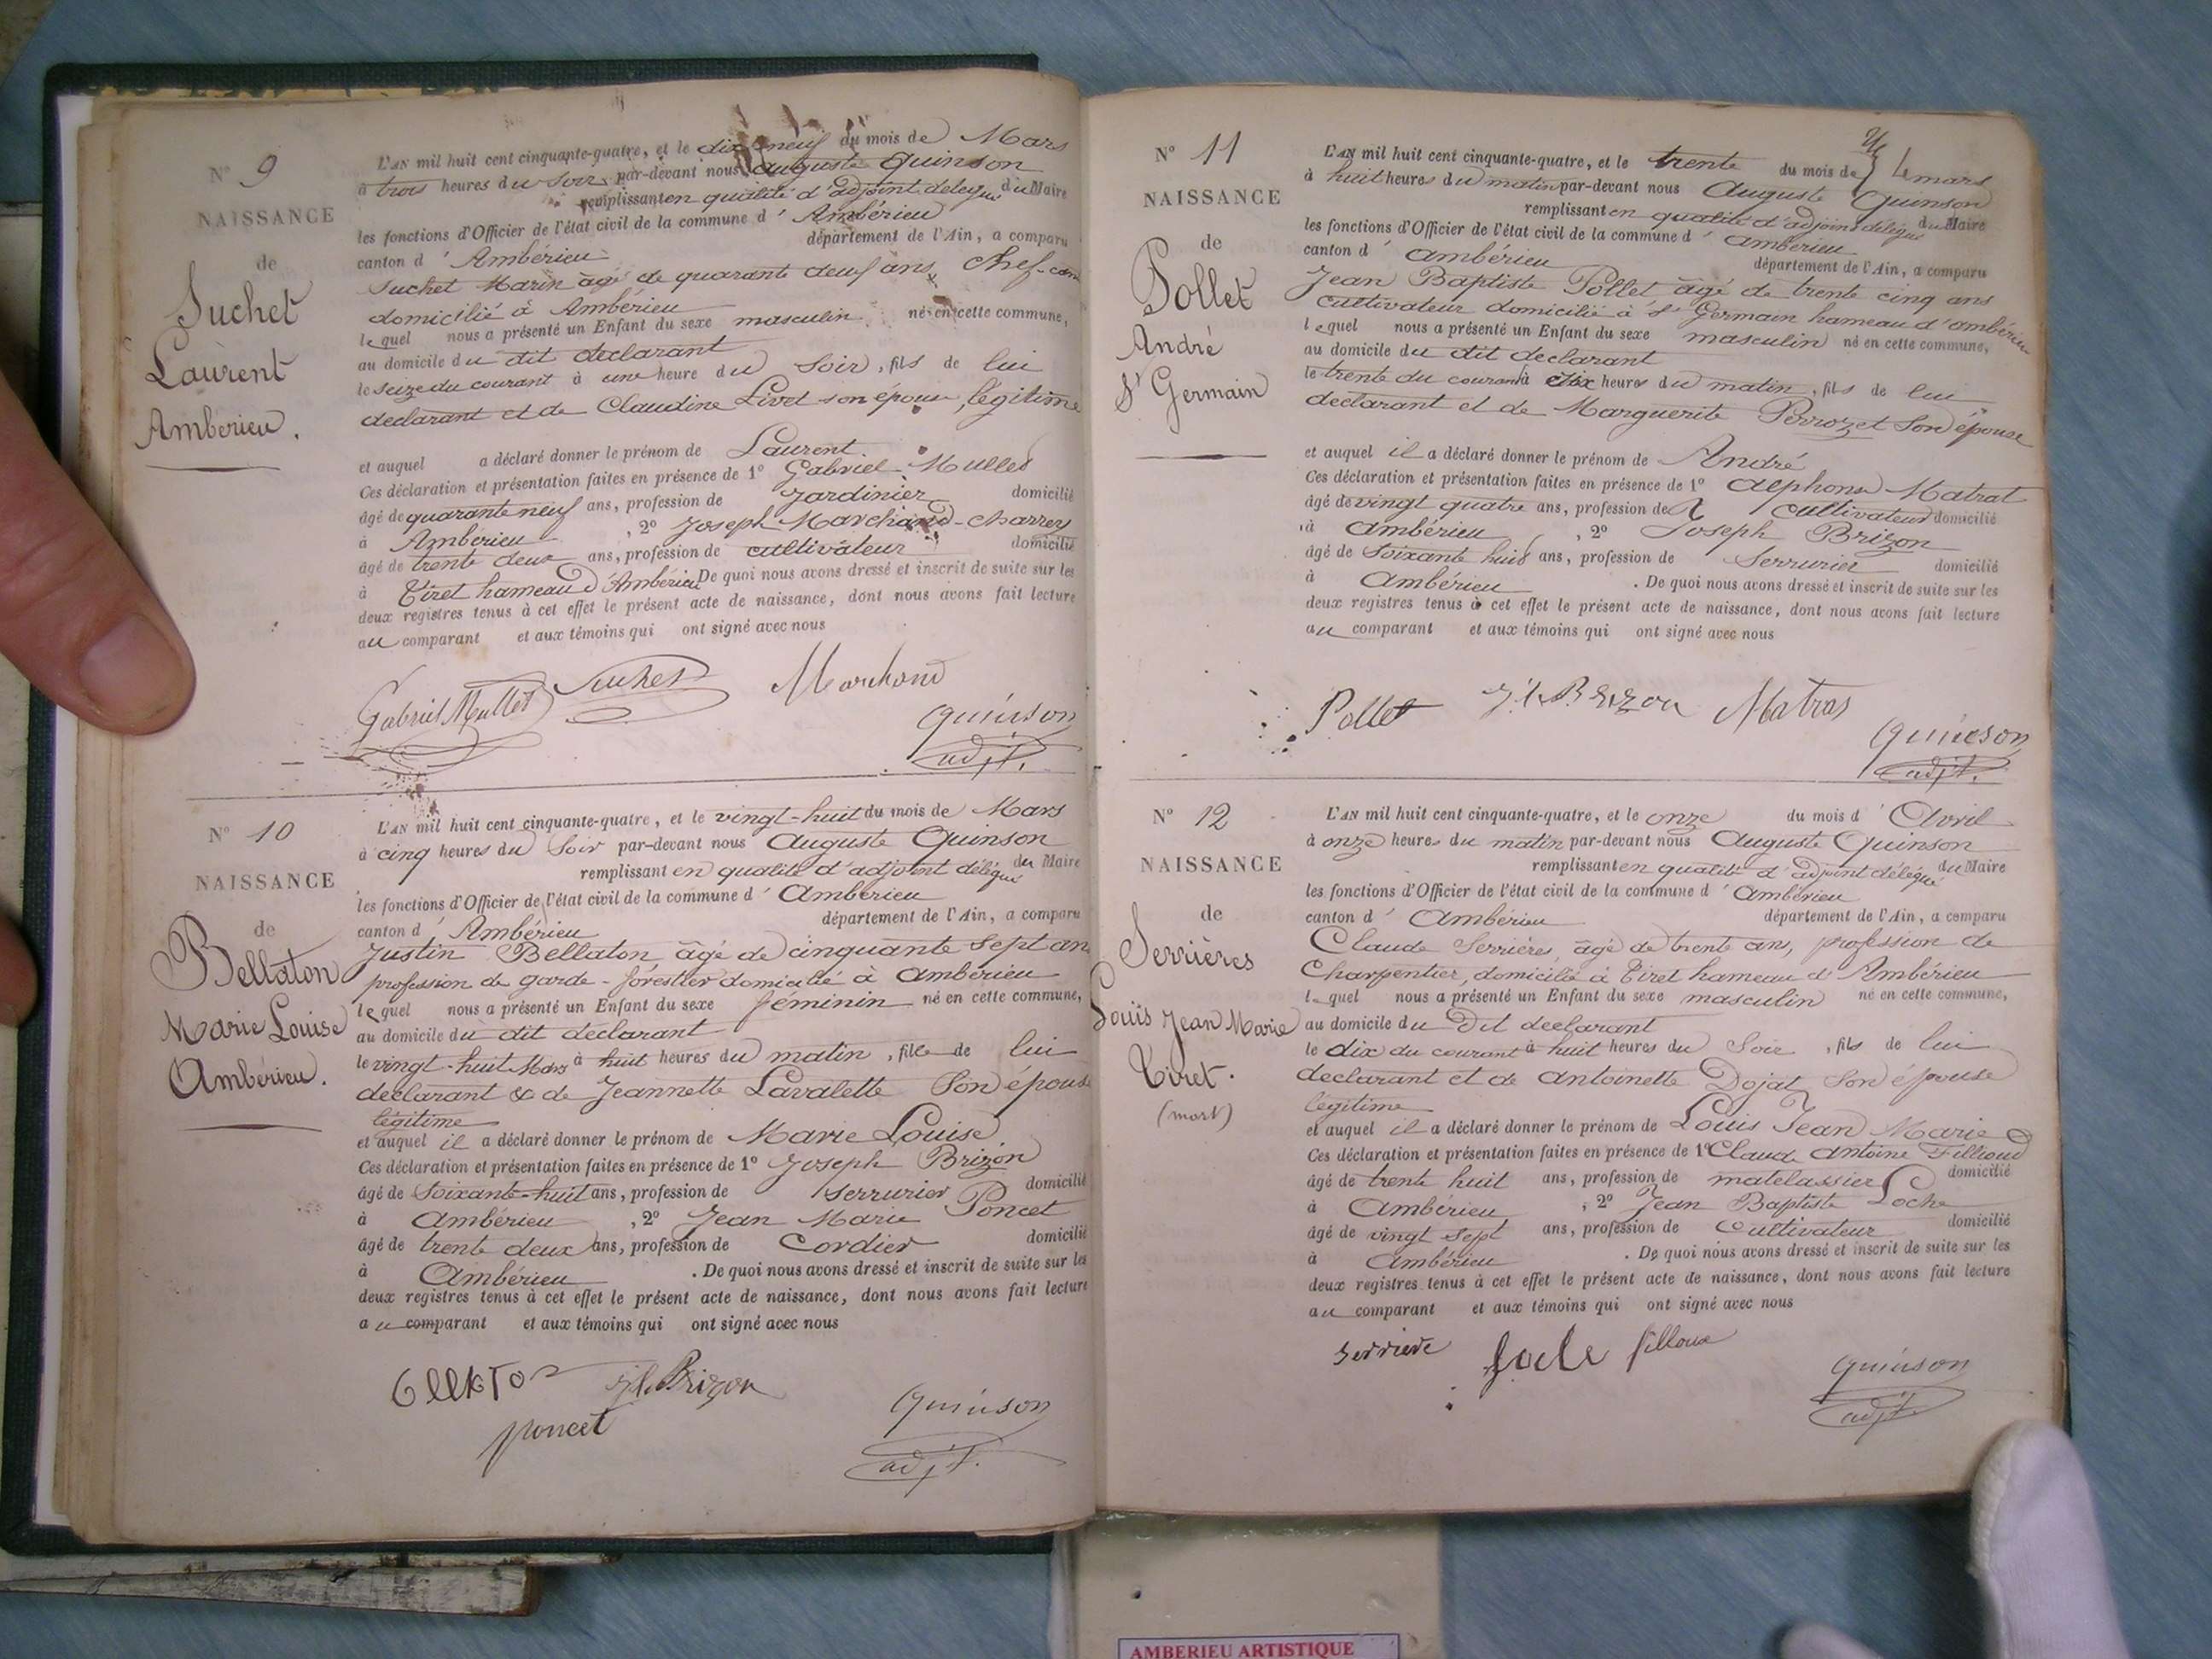 N° 9
NAISSANCE
de
Suchet
Laurent
Ambérieu.
L'AN mil huit cent cinquante-quatre, et le dix neuf du mois de Mars
à trois heures du Soir par-devant nous auguste Quinson
remplissant en qualité d'adjoint délégué du Maire
les fonctions d'Officier de l'état civil de la commune d' Ambérieu
canton d' Ambérieu département de l'Ain, a comparu
Suchet Marin âgé de quarante deux ans, Chef-can
domicilié à Ambérieu
lequel nous a présenté un Enfant du sexe masculin né en cette commune,
au domicile du dit déclarant
le seize du courant à une heure du Soir, fils de lui
déclarant et de Claudine Livet son épouse légitime
et auquel a déclaré donner le prénom de Laurent.
Ces déclaration et présentation faites en présence de 1° Gabriel Mullet
âgé de quarante neuf ans, profession de Jardinier domicilié
à Ambérieu, 2° Joseph Marchand-Charrey
âgé de trente deux ans, profession de cultivateur domicilié
à Tiret hameau d'Ambérieu De quoi nous avons dressé et inscrit de suite sur les
deux registres tenus à cet effet le présent acte de naissance, dont nous avons fait lecture
au comparant et aux témoins qui ont signé avec nous
Gabriel Mullet Suchet Marchand
Quinson
adjt.
N° 10
NAISSANCE
de
Bellaton
Marie Louise
Ambérieu.
L'AN mil huit cent cinquante-quatre, et le vingt-huit du mois de Mars
à cinq heures du Soir par-devant nous Auguste Quinson
remplissant en qualité d'adjoint délégué du Maire
les fonctions d'Officier de l'état civil de la commune d' Ambérieu
canton d' Ambérieu département de l'Ain, a comparu
Justin Bellaton âgé de cinquante sept an
profession de garde-forestier domicilié à Ambérieu
lequel nous a présenté un Enfant du sexe féminin né en cette commune,
au domicile du dit déclarant
le vingt-huit Mars à huit heures du matin, fille de lui
déclarant & de Jeannette Lavalette Son épouse
légitime
et auquel il a déclaré donner le prénom de Marie Louise.
Ces déclaration et présentation faites en présence de 1° Joseph Brizon
âgé de Soixante-huit ans, profession de Serrurier domicilié
à Ambérieu, 2° Jean Marie Poncet
âgé de trente deux ans, profession de Cordier domicilié
à Ambérieu. De quoi nous avons dressé et inscrit de suite sur les
deux registres tenus à cet effet le présent acte de naissance, dont nous avons fait lecture
au comparant et aux témoins qui ont signé avec nous
Brizon
poncet
Quinson
adjt.
N° 11
NAISSANCE
de
Pollet
André
St Germain
L'AN mil huit cent cinquante-quatre, et le trente du mois de mars
à huit heures du matin par-devant nous Auguste Quinson
remplissant en qualité d'adjoint délégué du Maire
les fonctions d'Officier de l'état civil de la commune d' Ambérieu
canton d' Ambérieu département de l'Ain, a comparu
Jean Baptiste Pollet âgé de trente cinq ans
cultivateur domicilié à St Germain hameau d'ambérieu
lequel nous a présenté un Enfant du sexe masculin né en cette commune,
au domicile du dit déclarant
le trente du courant à heures du matin, fils de lui
déclarant et de Marguerite Perrozet Son épouse
et auquel il a déclaré donner le prénom de André
Ces déclaration et présentation faites en présence de 1° Alphonse Matrat
âgé de vingt quatre ans, profession de cultivateur domicilié
à Ambérieu, 2° Joseph Brizon
âgé de Soixante huit ans, profession de Serrurier domicilié
à Ambérieu. De quoi nous avons dressé et inscrit de suite sur les
deux registres tenus à cet effet le présent acte de naissance, dont nous avons fait lecture
au comparant et aux témoins qui ont signé avec nous
Pollet Brizon Matras
Quinson
adjt.
N° 12
NAISSANCE
de
Serrières
Louis Jean Marie
Tiret.
(mort)
L'AN mil huit cent cinquante-quatre, et le onze du mois d' Avril
à onze heures du matin par-devant nous Auguste Quinson
remplissant en qualité d'adjoint délégué du Maire
les fonctions d'Officier de l'état civil de la commune d' Ambérieu
canton d' Ambérieu département de l'Ain, a comparu
Claude Serrières, âgé de trente ans, profession de
Charpentier, domicilié à Tiret hameau d'Ambérieu
lequel nous a présenté un Enfant du sexe masculin né en cette commune,
au domicile du Dit declarant
le dix du courant à huit heures du Soir, fils de lui
déclarant et de Antoinette Dojat Son épouse
légitime
et auquel il a déclaré donner le prénom de Louis Jean Marie
Ces déclaration et présentation faites en présence de 1° Claude Antoine Fillioud
âgé de trente huit ans, profession de matelassier domicilié
à Ambérieu, 2° Jean Baptiste Loche
âgé de vingt sept ans, profession de Cultivateur domicilié
à Ambérieu. De quoi nous avons dressé et inscrit de suite sur les
deux registres tenus à cet effet le présent acte de naissance, dont nous avons fait lecture
au comparant et aux témoins qui ont signé avec nous
serriere
Quinson
adjt.
AMBERIEU ARTISTIQUE